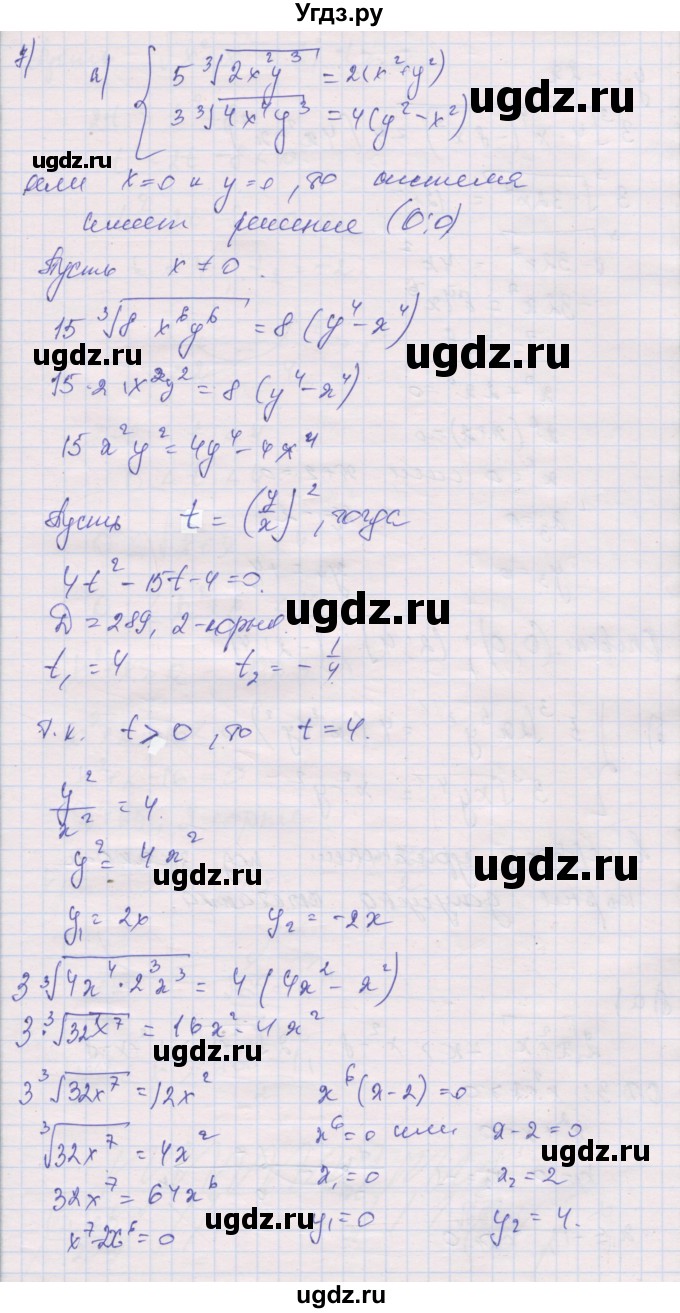 Угдз.ру
7)
а) { 5∛(2x²y³) = 2(x²+y²)
3∛(4x⁴y³) = 4(y²-x²)
ugdz.ru
ugdz.ru
если x=0 и y=0, то система
имеет решение (0;0)
Пусть x ≠ 0.
15 ∛(8 x⁶y⁶) = 8(y⁴-x⁴)
ugdz.ru
ugdz.ru
15·2 x²y² = 8(y⁴-x⁴)
15x²y² = 4y⁴-4x⁴
Пусть t = (y/x)², тогда
4t²-15t-4=0.
D = 289, 2 корня.
ugdz.ru
t₁ = 4 t₂ = -1/4
Т.к. t > 0, то t = 4.
y²/x² = 4.
y² = 4x²
ugdz.ru
ugdz.ru
y₁ = 2x y₂ = -2x
3∛(4x⁴·2³x³) = 4(4x²-x²)
3·∛(32x⁷) = 16x²-4x²
ugdz.ru
3∛(32x⁷) = 12x² x⁶(x-2)=0
∛(32x⁷) = 4x² x⁶=0 или x-2=0
ugdz.ru
32x⁷ = 64x⁶ x₁=0 x₂=2
ugdz.ru
x⁷-2x⁶=0 y₁=0 y₂=4.
Угдз.ру